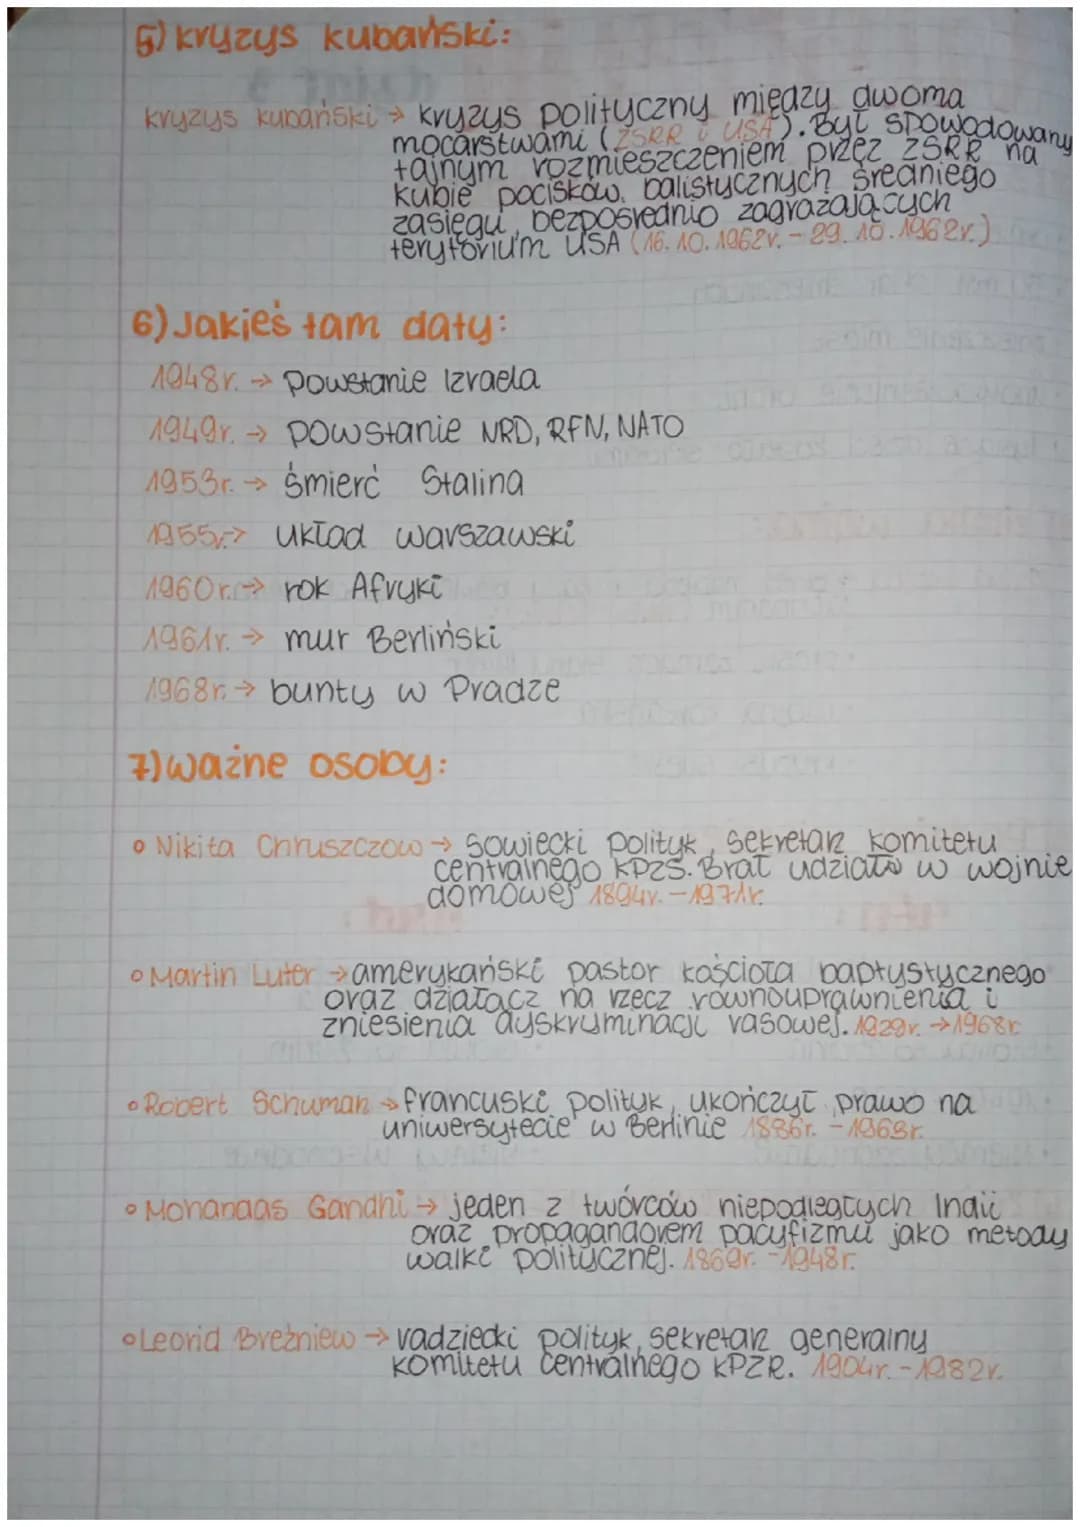 5) kryzys kubański:
kryzys kubański → kryzys polityczny między dwoma
mocarstwami (ZSRR i USA). Był spowodowany
tajnym rozmieszczeniem przez ZSRR na
Kubie pocisków balistycznych średniego
zasięgu, bezpośrednio zagrażających
terytorium USA (16.10.1962r. - 29.10.1962r.)
6) Jakieś tam daty:
1948r. → powstanie Izraela
1949r. → powstanie NRD, RFN, NATO
1953r. → śmierć Stalina
1955r. → układ warszawski
1960r. → rok Afryki
1961r. → mur Berliński
1968r. → bunty w Pradze
7) ważne osoby:
• Nikita Chruszczow → sowiecki polityk, sekretarz komitetu
centralnego KPZS. Brał udział w wojnie
domowej 1894r. - 1971r.
• Martin Luter → amerykański pastor kościoła baptystycznego
oraz działacz na rzecz równouprawnienia i
zniesienia dyskryminacji rasowej. 1929r. → 1968r.
• Robert Schuman → francuski polityk, ukończył prawo na
uniwersytecie w Berlinie 1886r. - 1963r.
• Mohandas Gandhi → jeden z twórców niepodległych Indii
oraz propagandorem pacyfizmu jako metody
walki politycznej. 1869r. - 1948r.
• Leonid Breżniew → radziecki polityk, sekretarz generalny
komitetu centralnego KPZR. 1904r. - 1982r.